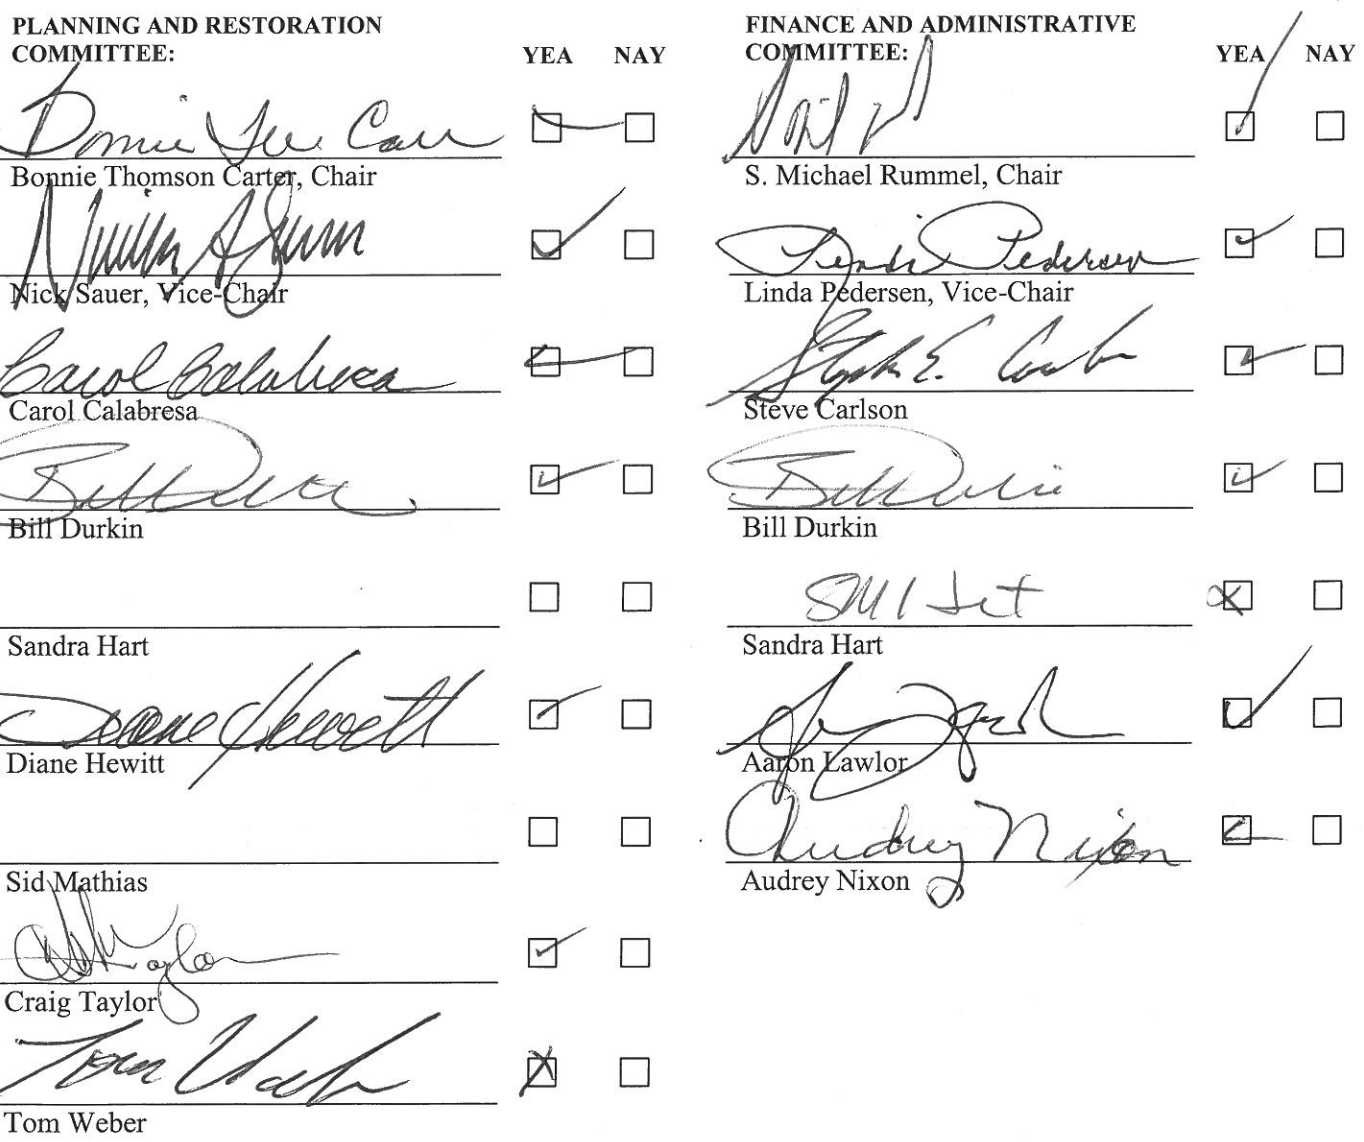 PLANNING AND RESTORATION
COMMITTEE:
YEA NAY
Bonnie Thomson Carter, Chair
Nick Sauer, Vice-Chair
Carol Calabresa
Carol Calabresa
Bill Durkin
Bill Durkin
Sandra Hart
Diane Hewitt
Diane Hewitt
Sid Mathias
Craig Taylor
Tom Weber
Tom Weber
FINANCE AND ADMINISTRATIVE
COMMITTEE:
YEA NAY
S. Michael Rummel, Chair
Linda Pedersen
Linda Pedersen, Vice-Chair
Steve Carlson
Bill Durkin
Bill Durkin
Sandra Hart
Aaron Lawlor
Audrey Nixon
Audrey Nixon